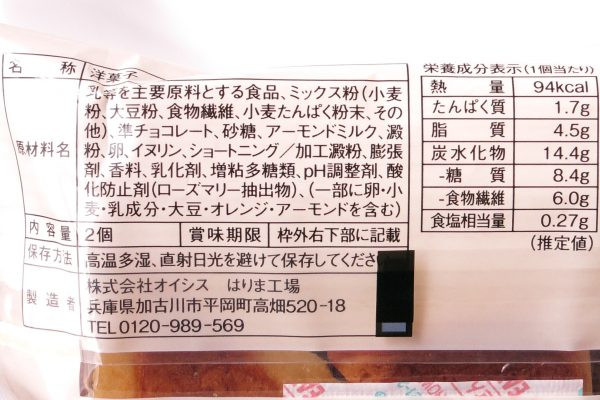 名 称 洋菓子
原材料名
乳等を主要原料とする食品、ミックス粉(小麦
粉、大豆粉、食物繊維、小麦たんぱく粉末、その
他)、準チョコレート、砂糖、アーモンドミルク、澱
粉、卵、イヌリン、ショートニング／加工澱粉、膨張
剤、香料、乳化剤、増粘多糖類、pH調整剤、酸
化防止剤(ローズマリー抽出物)、(一部に卵・小
麦・乳成分・大豆・オレンジ・アーモンドを含む)
内容量 2個 賞味期限 枠外右下部に記載
保存方法 高温多湿、直射日光を避けて保存してくださ
製造者
株式会社オイシス はりま工場
兵庫県加古川市平岡町高畑520-18
TEL0120-989-569
栄養成分表示(1個当たり)
熱量 94kcal
たんぱく質 1.7g
脂質 4.5g
炭水化物 14.4g
-糖質 8.4g
-食物繊維 6.0g
食塩相当量 0.27g
(推定値)